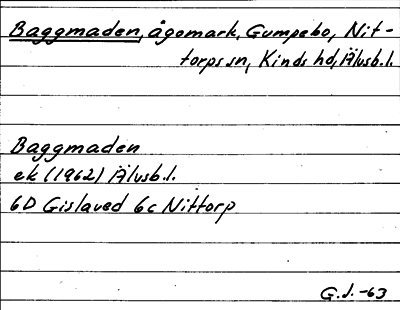 Baggmaden, ägomark, Gumpebo, Nit-
torps sn, Kinds hd, Älvsb.l.
Baggmaden
ek (1962) Älvsb.l.
6D Gislaved 6c Nittorp
G.J. -63